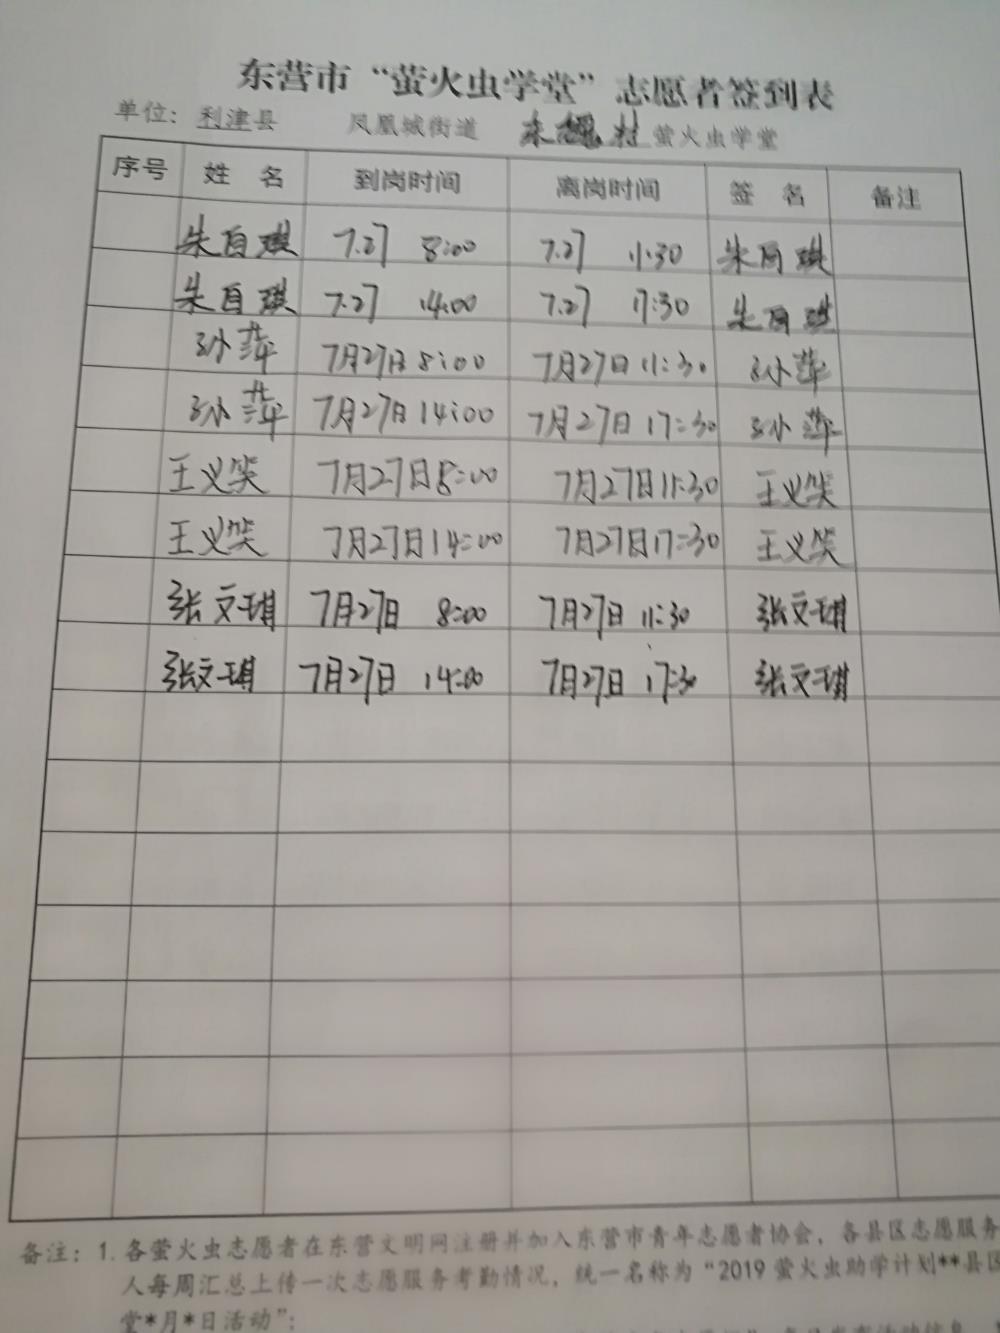 东营市“萤火虫学堂”志愿者签到表
单位：利津县 凤凰城街道 村 萤火虫学堂
序号 姓 名 到岗时间 离岗时间 签 名 备注
朱百琪 7.27 8:00 7.27 11:30 朱百琪
朱百琪 7.27 14:00 7.27 17:30 朱百琪
孙萍 7月27日 8:00 7月27日 11:30 孙萍
孙萍 7月27日 14:00 7月27日 17:30 孙萍
王义笑 7月27日 8:00 7月27日 11:30 王义笑
王义笑 7月27日 14:00 7月27日 17:30 王义笑
张文琪 7月27日 8:00 7月27日 11:30 张文琪
张文琪 7月27日 14:00 7月27日 17:30 张文琪
备注：1.各萤火虫志愿者在东营文明网注册并加入东营市青年志愿者协会，各县区志愿服务
人每周汇总上传一次志愿服务考勤情况，统一名称为“2019萤火虫助学计划**县区
堂*月*日活动”；